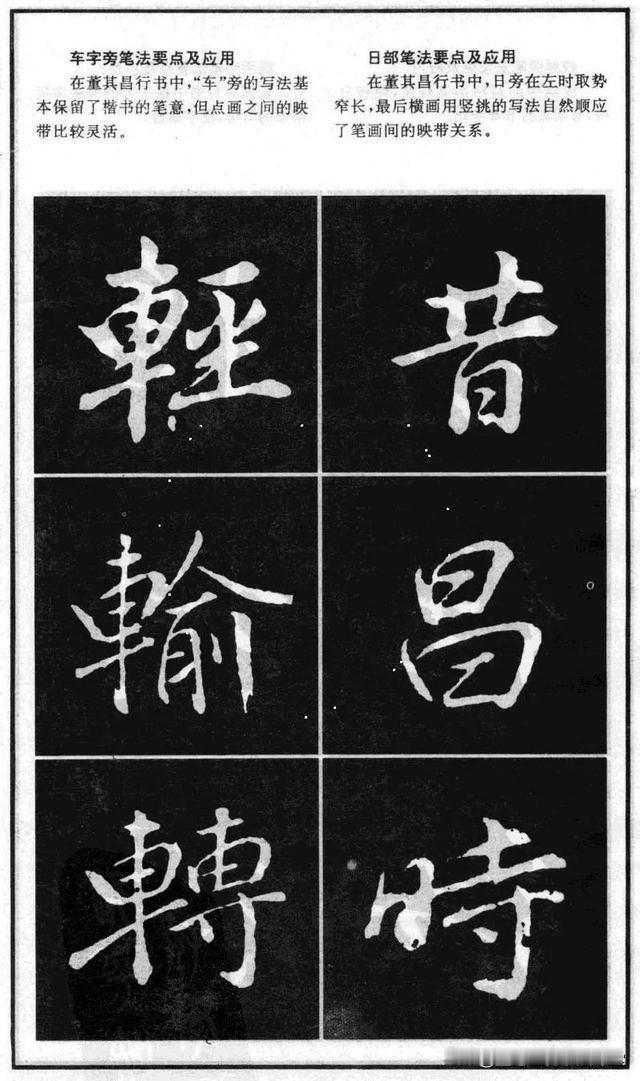 车字旁笔法要点及应用
在董其昌行书中，“车”旁的写法基
本保留了楷书的笔意，但点画之间的映
带比较灵活。
日部笔法要点及应用
在董其昌行书中，日旁在左时取势
窄长，最后横画用竖挑的写法自然顺应
了笔画间的映带关系。
輕
昔
輸
昌
轉
時